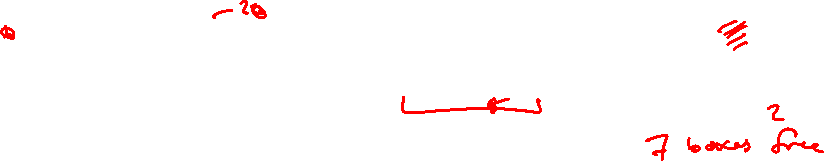 2
7 boxes free